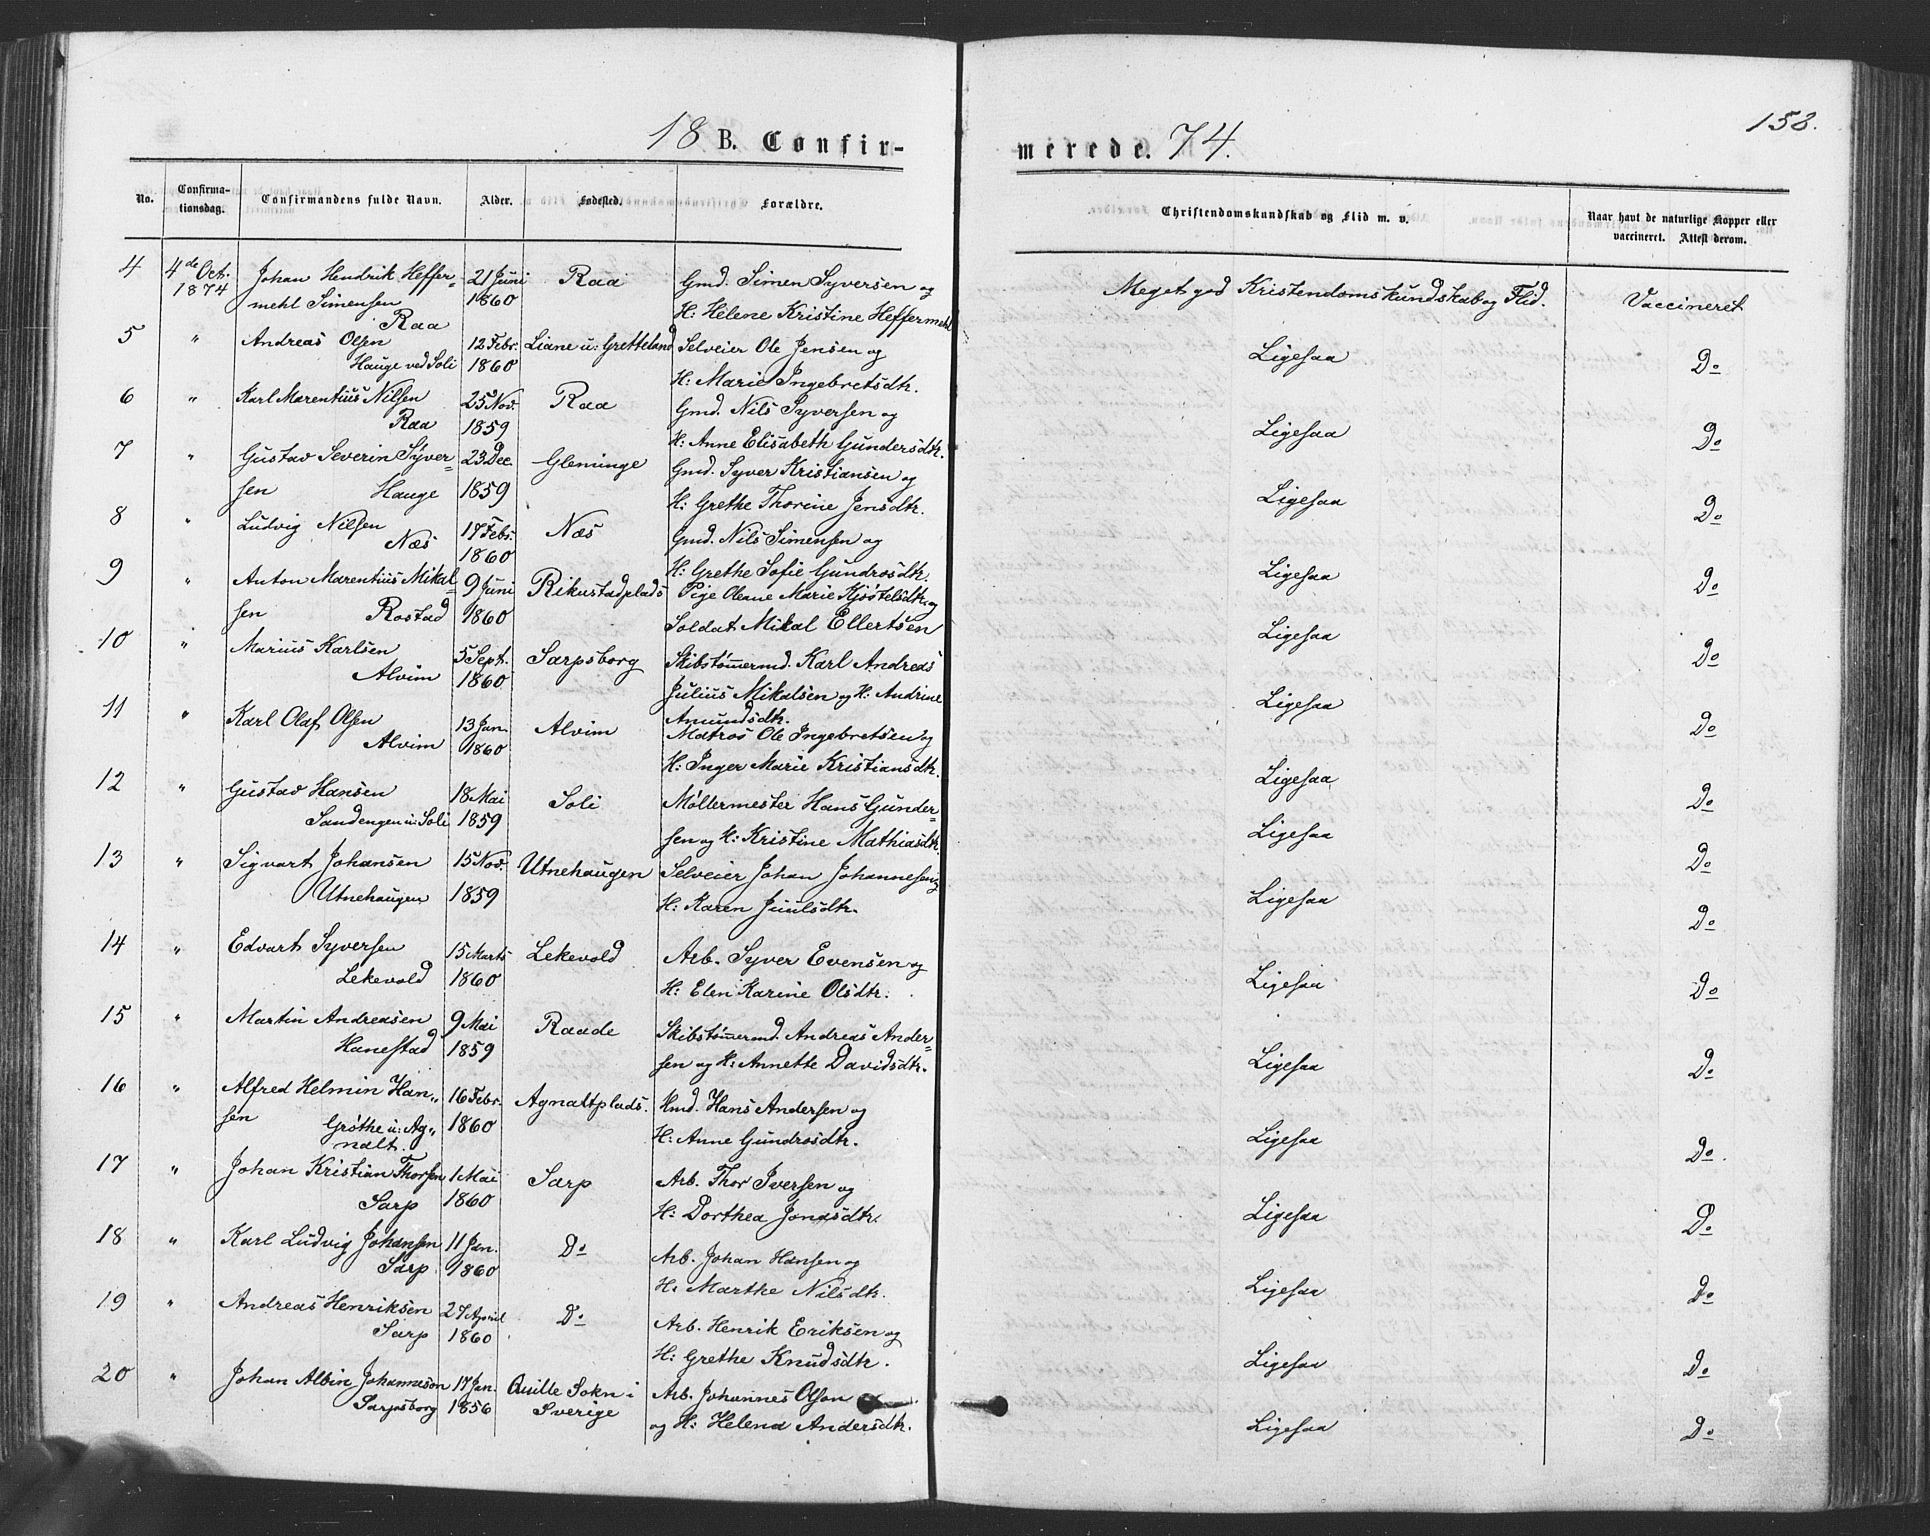 18 B. Confir-
merede. 74.
153.
No.
Confirma-
tionsdag.
Confirmandens fulde Navn.
Alder.
Fødested.
Forældre.
Christendomskundskab og Flid m. v.
Naar havt de naturlige Kopper eller
vaccineret. Attest derom.
4 4de Oct. Johan Hendrik Heffer- 21 Juni Raa Gmd. Simen Syversen og Meget god Kristendomskundskab og Flid. Vaccineret
1874 mehl Simensen 1860 H: Helene Kristine Heffermehl
Raa
5 " Andreas Olsen 12 Febr. Liane u: Gretteland Selveier Ole Jensen og Ligesaa Do
Hauge ved Soli 1860 H: Marie Ingebretsdtr.
6 " Karl Marentius Nilsen 25 Nov. Raa Gmd. Nils Syversen og Ligesaa Do
Raa 1859 H: Anne Elisabeth Gundersdtr.
7 " Gustav Severin Syver= 23 Dec. Gleminge Gmd. Syver Kristiansen og Ligesaa Do
sen Hauge 1859 H: Grethe Thorine Jensdtr.
8 " Ludvig Nilsen 17 Febr. Næs Gmd. Nils Simensen og Ligesaa Do
Næs 1860 H: Grethe Sofie Gundrosdtr.
9 " Anton Marentius Mikal= 9 Juni Rikustadplads Pige Oleane Marie Kjøstelsdtr. og Ligesaa Do
sen Rostad 1860 Soldat Mikal Ellertsen
10 " Marius Karlsen 5 Sept. Sarpsborg Skibstømmermd. Karl Andreas Ligesaa Do
Alvim 1860 Julius Mikalsen og H: Andrine
Amundsdtr.
11 " Karl Olaf Olsen 13 Jan. Alvim Matros Ole Ingebretsen og Ligesaa Do
Alvim 1860 H: Inger Marie Kristiansdtr.
12 " Gustav Hansen 18 Mai Soli Møllermester Hans Gunder= Ligesaa Do
Sandengen u: Soli 1859 sen og H: Kristine Mathiasdtr.
13 " Sigvart Johansen 15 Nov. Utnehaugen Selveier Johan Johannesen og Ligesaa Do
Utnehaugen 1859 H: Karen Juulsdtr.
Ligesaa Do
14 " Edvart Syversen 15 Marts Lekevold Arb. Syver Evensen og Ligesaa Do
Lekevold 1860 H: Elen Karine Olsdtr.
15 " Martin Andreasen 9 Mai Raade Skibstømmermd. Andreas Ander= Ligesaa Do
Hanestad 1859 sen og H: Annette Davidsdtr.
16 " Alfred Helmin Han= 16 Febr. Agnaltplads. Hmd. Hans Andersen og Ligesaa Do.
sen Grøthe u: Ag= 1860 H: Anne Gundrosdtr.
nalt.
17 " Johan Kristian Thorsen 1 Mai Sarp Arb. Thor Iversen og Ligesaa Do
Sarp 1860 H: Dorthea Jonasdtr.
18 " Karl Ludvig Johansen 11 Jan. Do Arb. Johan Hansen og Ligesaa Do
Sarp 1860 H: Marthe Nilsdtr.
19 " Andreas Henriksen 27 April Do Arb. Henrik Eriksen og Ligesaa Do
Sarp 1860 H: Grethe Knudsdtr.
20 " Johan Albin Johanneson 17 Jan. Quille Sokn i Arb. Johannes Olson Ligesaa Do
Sarpsborg 1856 Sverige og H: Helena Andersdtr.